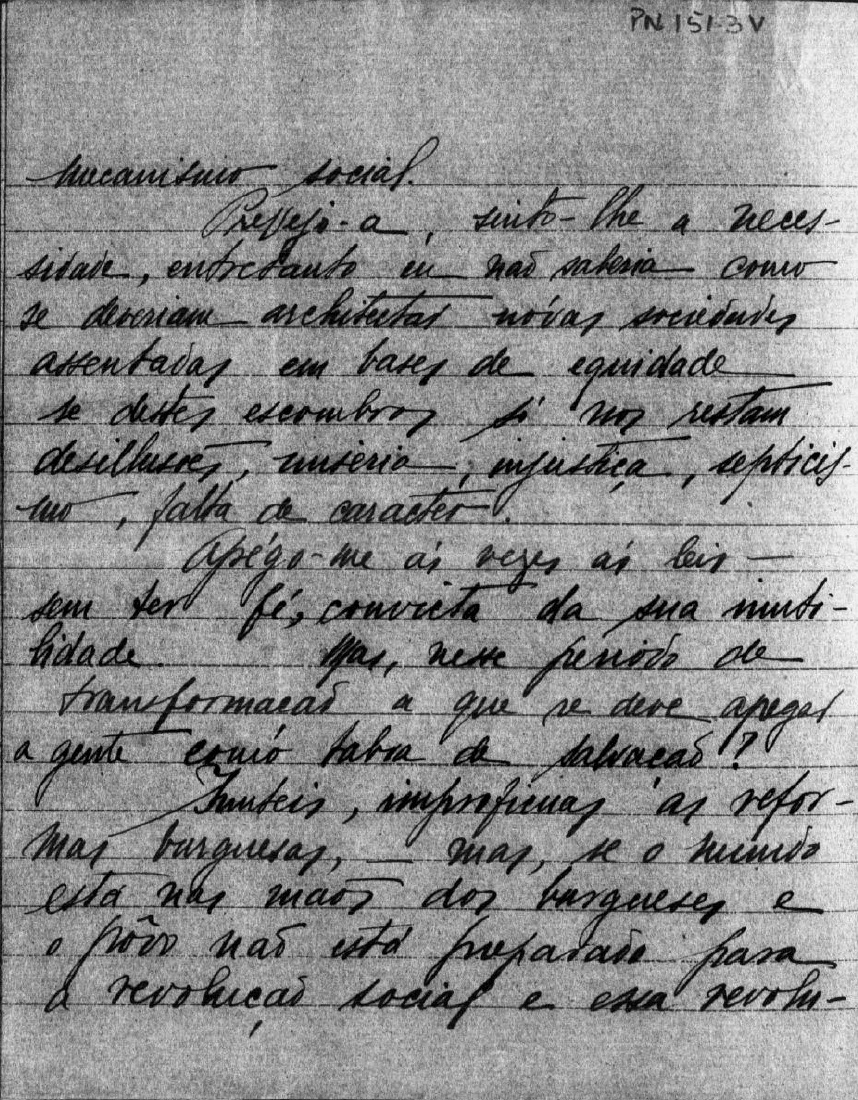 PN 151.3V
mecanismo social.
Prevejo-a, sinto-lhe a neces-
sidade, entretanto eu não saberia como
se deveriam architectar nóvas sociedades
assentadas em bases de equidade
se destes escombros só nos restam
desillusões, miséria, injustiça, septicis-
mo, falta de caracter.
Apégo-me ás vezes ás leis —
sem ter fé, convicta da sua inuti-
lidade. Mas, nesse periodo de
transformação a que se deve apegar
a gente como taboa de salvação?
Inuteis, improficuas as refor-
mas burguesas, — mas, se o mundo
está nas mãos dos burgueses e
o pôvo não está preparado para
a revolução social e essa revolu-